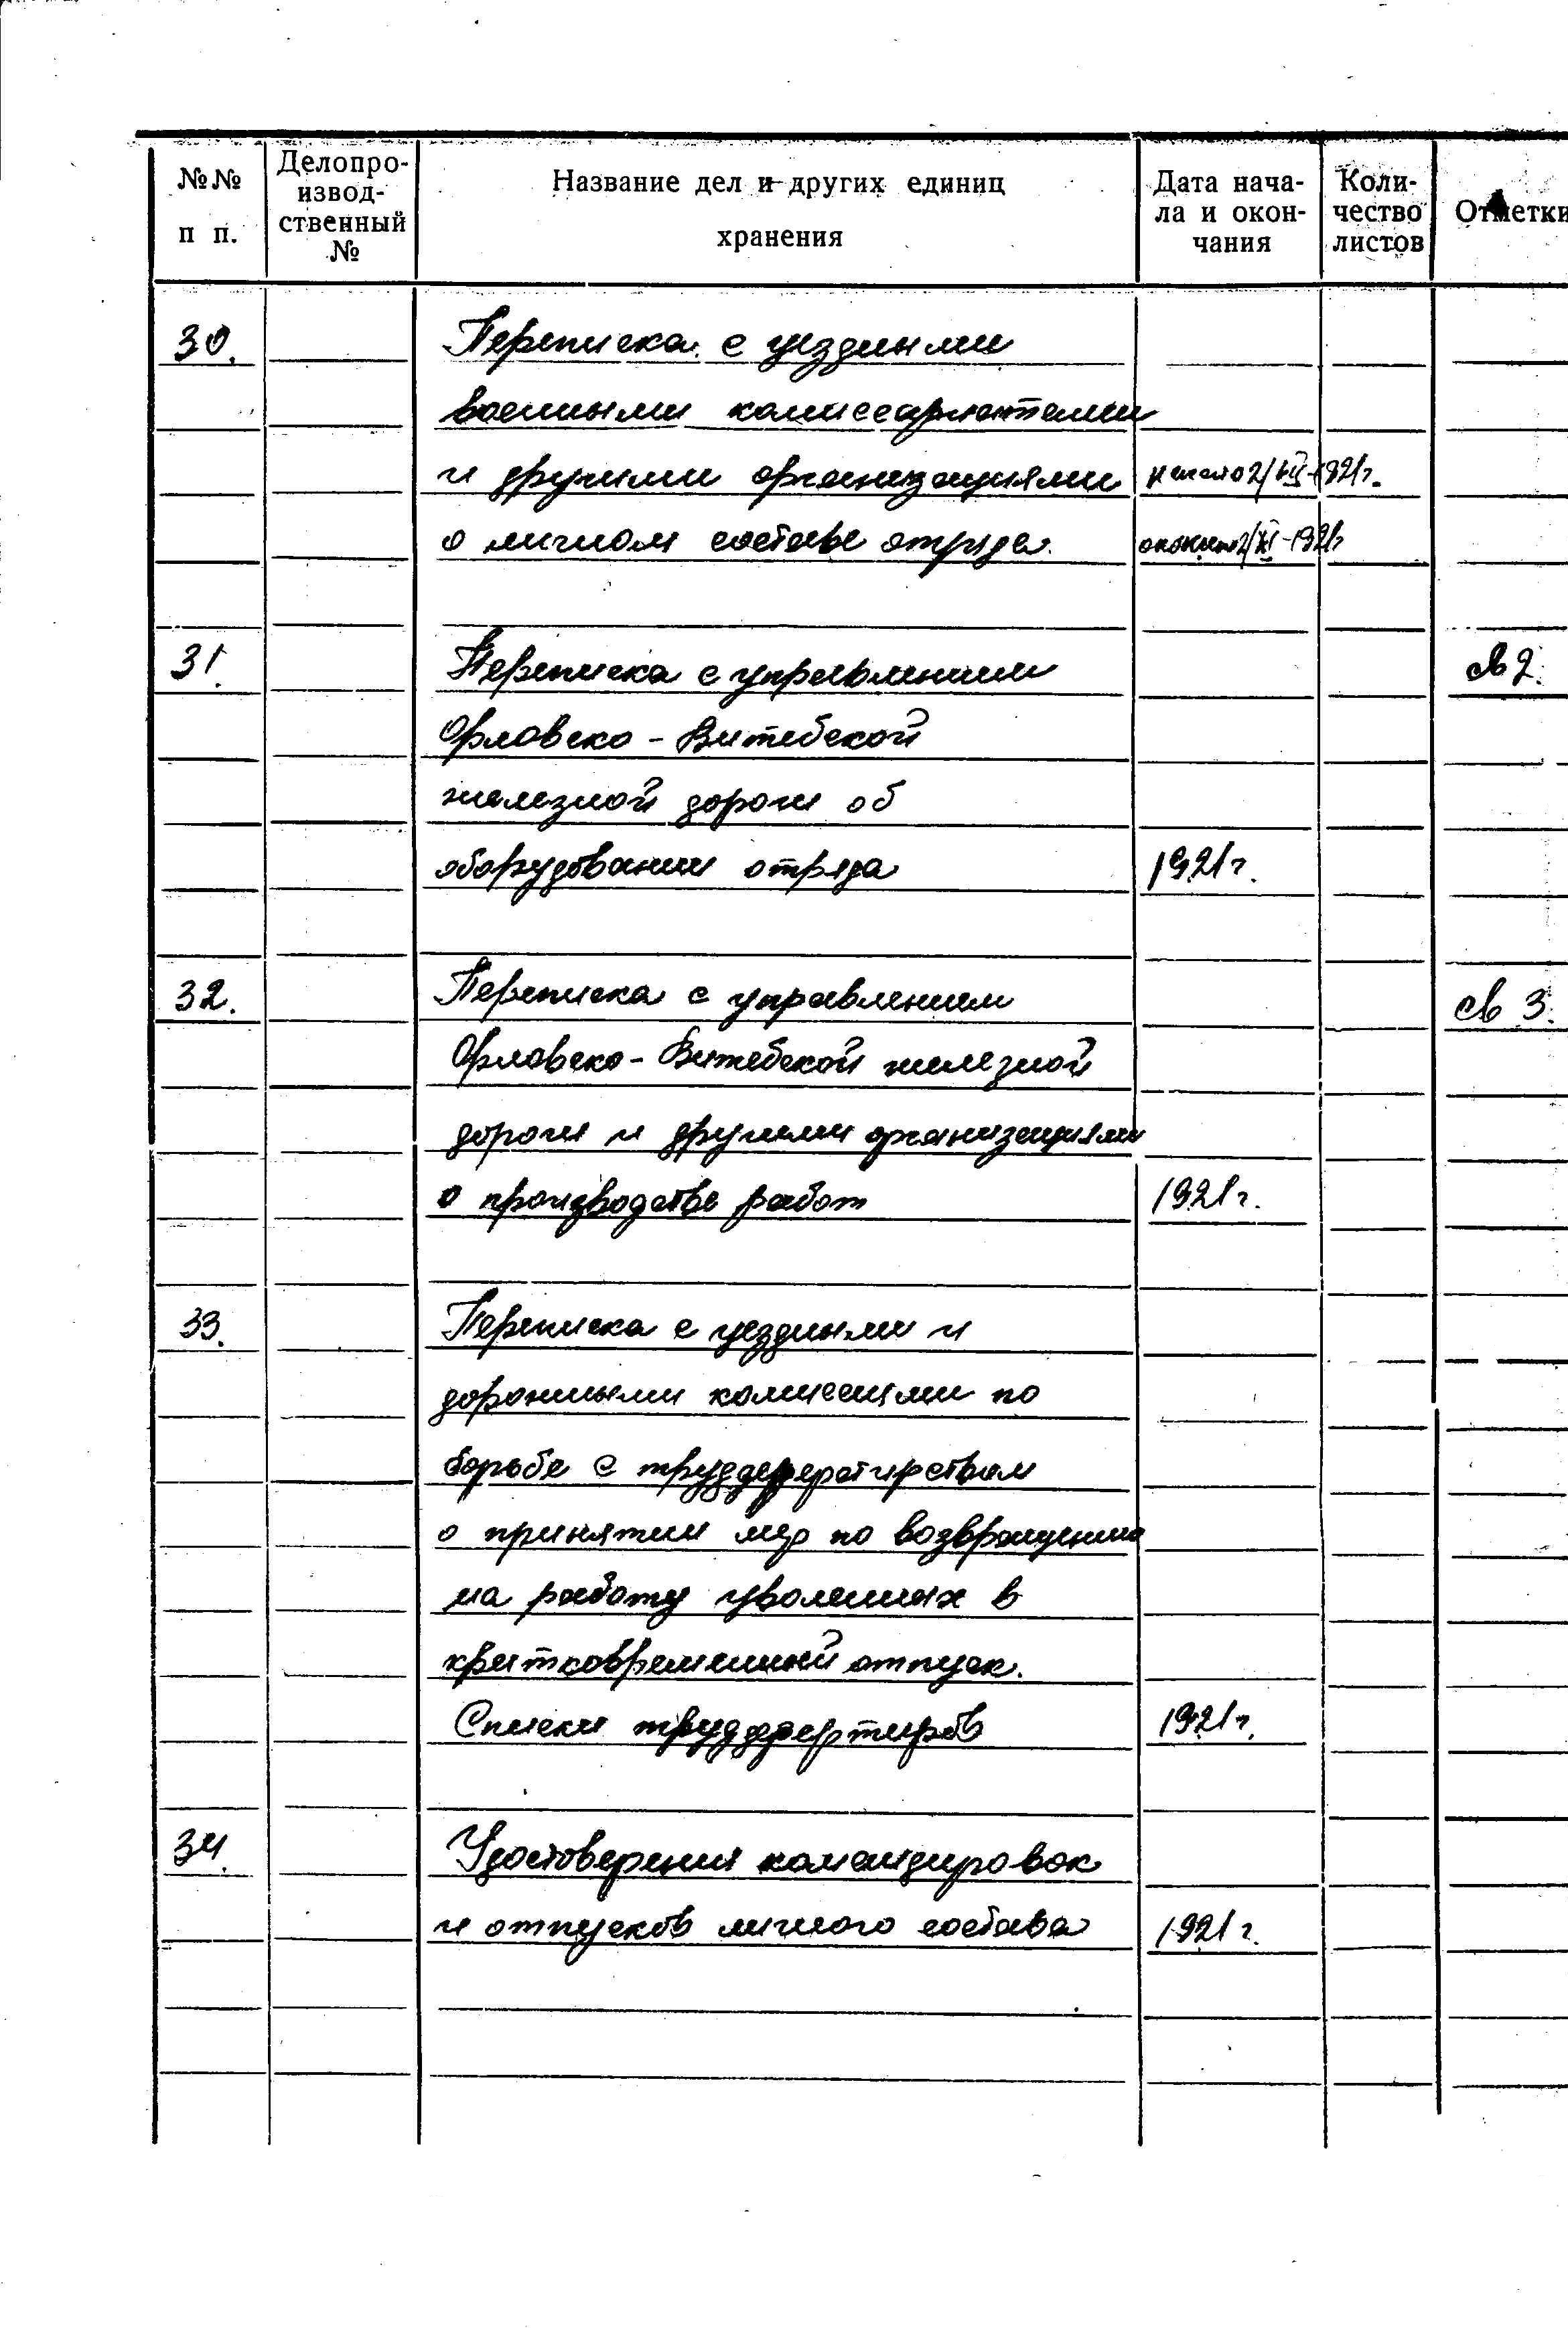 №№ п п.
Делопро-
извод-
ственный
№
Название дел и других единиц
хранения
Дата нача-
ла и окон-
чания
Коли-
чество
листов
Отметки
30.
Переписка с уездными
военными комиссариатами
и другими организациями начало 2/VII-1921г.
о личном составе отряда. окончено 2/XI-1921г
31. Переписка с управлением св 2.
Орловско-Витебской
железной дороги об
оборудовании отряда 1921г.
32. Переписка с управлением св 3.
Орловско-Витебской железной
дороги и другими организациями
о производстве работ 1921г.
33. Переписка с уездными и
дорожными комиссиями по
борьбе с труддезертирством
о принятии мер по возвращению
на работу уволенных в
кратковременный отпуск.
Списки труддезертиров 1921г.
34. Удостоверения командировок
и отпусков личного состава 1921г.